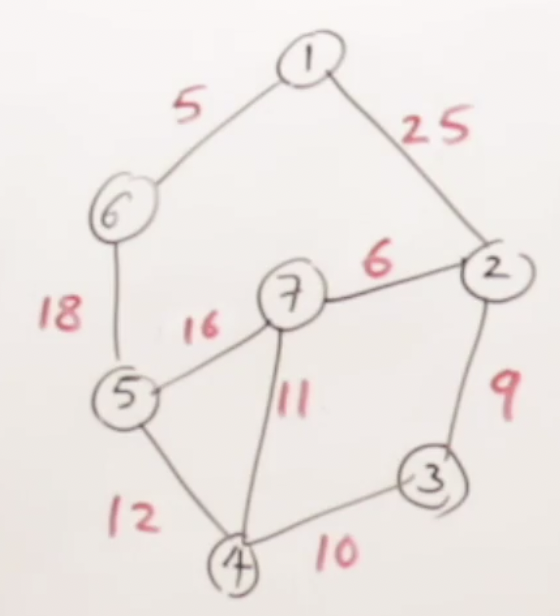 1
5
25
6
6
2
7
18
16
5
11
9
3
12
10
4